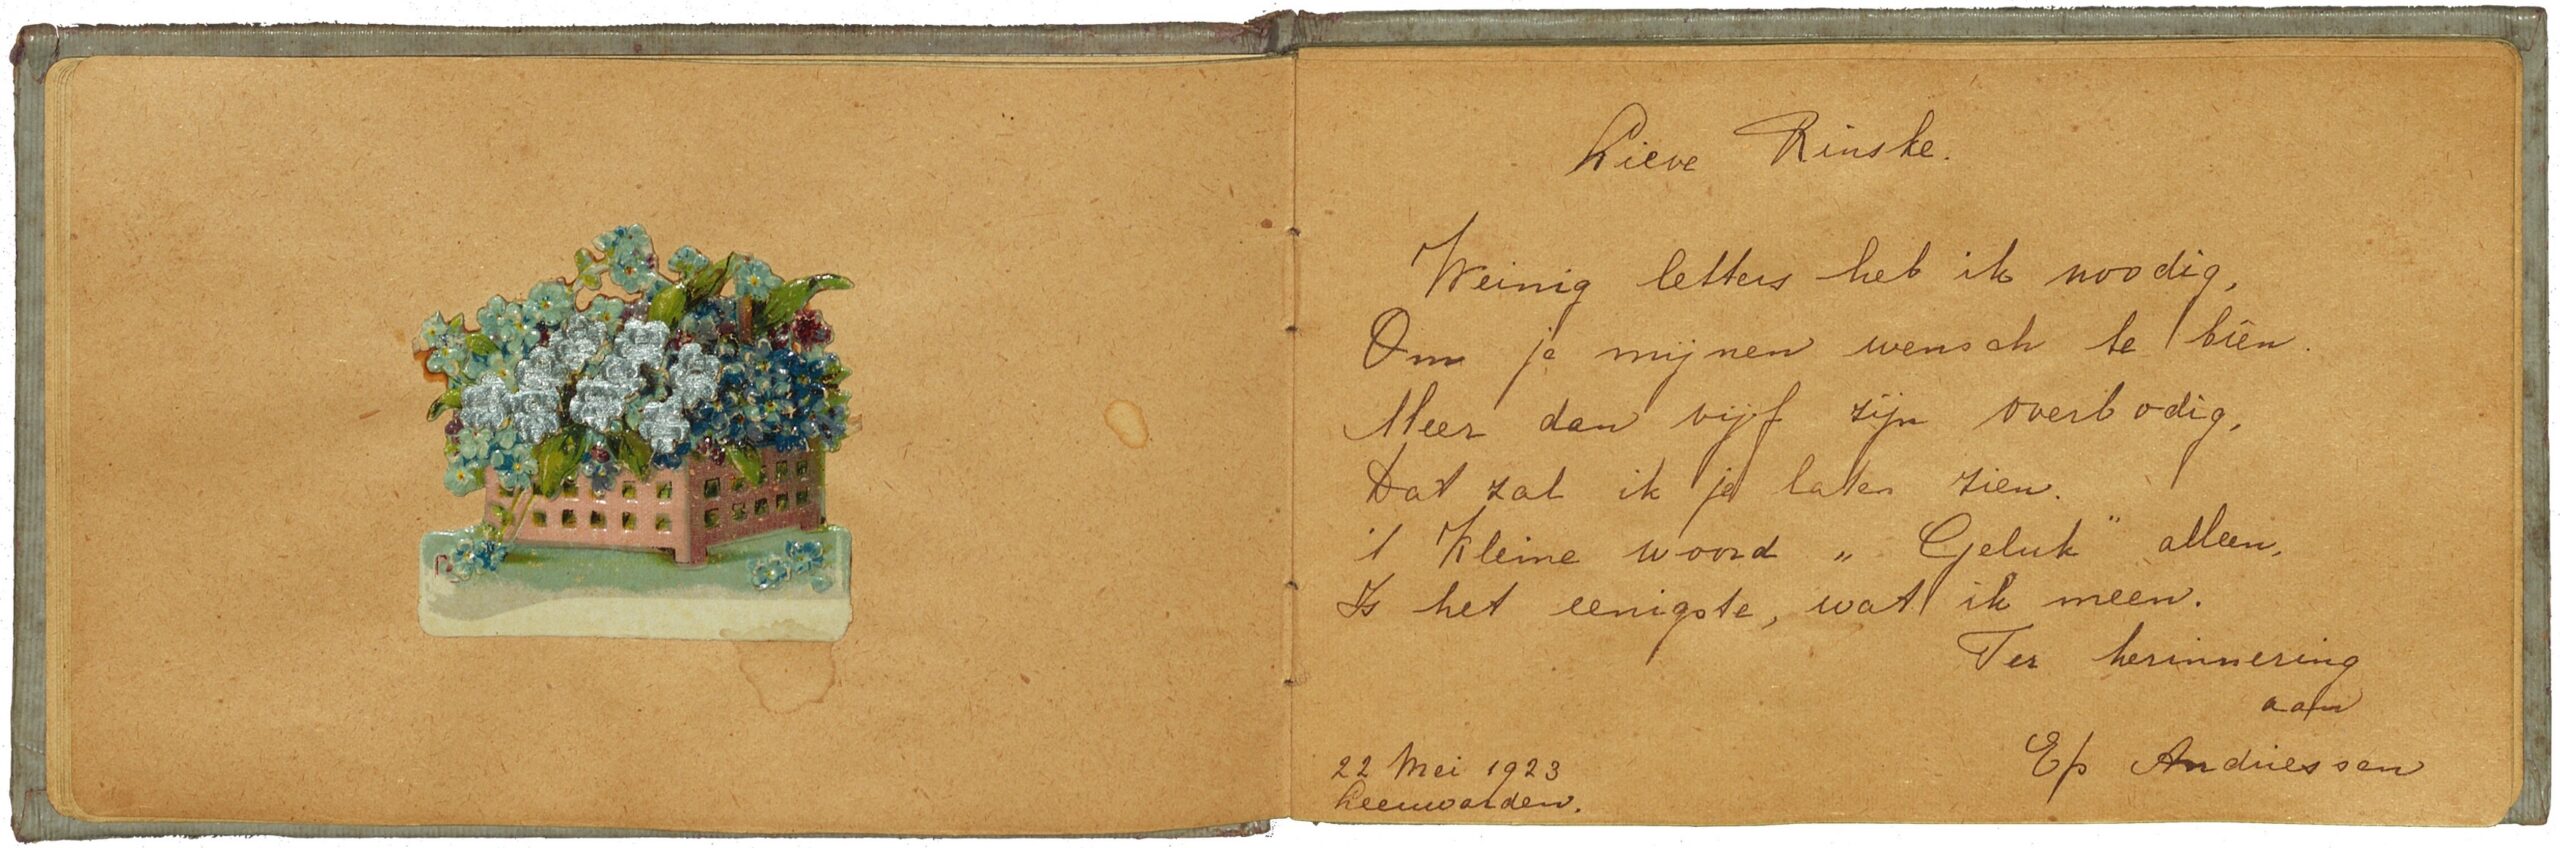 Lieve Rinske.
Weinig letters heb ik noodig,
Om je mijnen wensch te biên.
Meer dan vijf zijn overbodig,
Dat zal ik je laten zien.
't Kleine woord „Geluk" alleen,
Is het eenigste, wat ik meen.
Ter herinnering
aan
Ep Andriessen
22 Mei 1923
Leeuwarden.